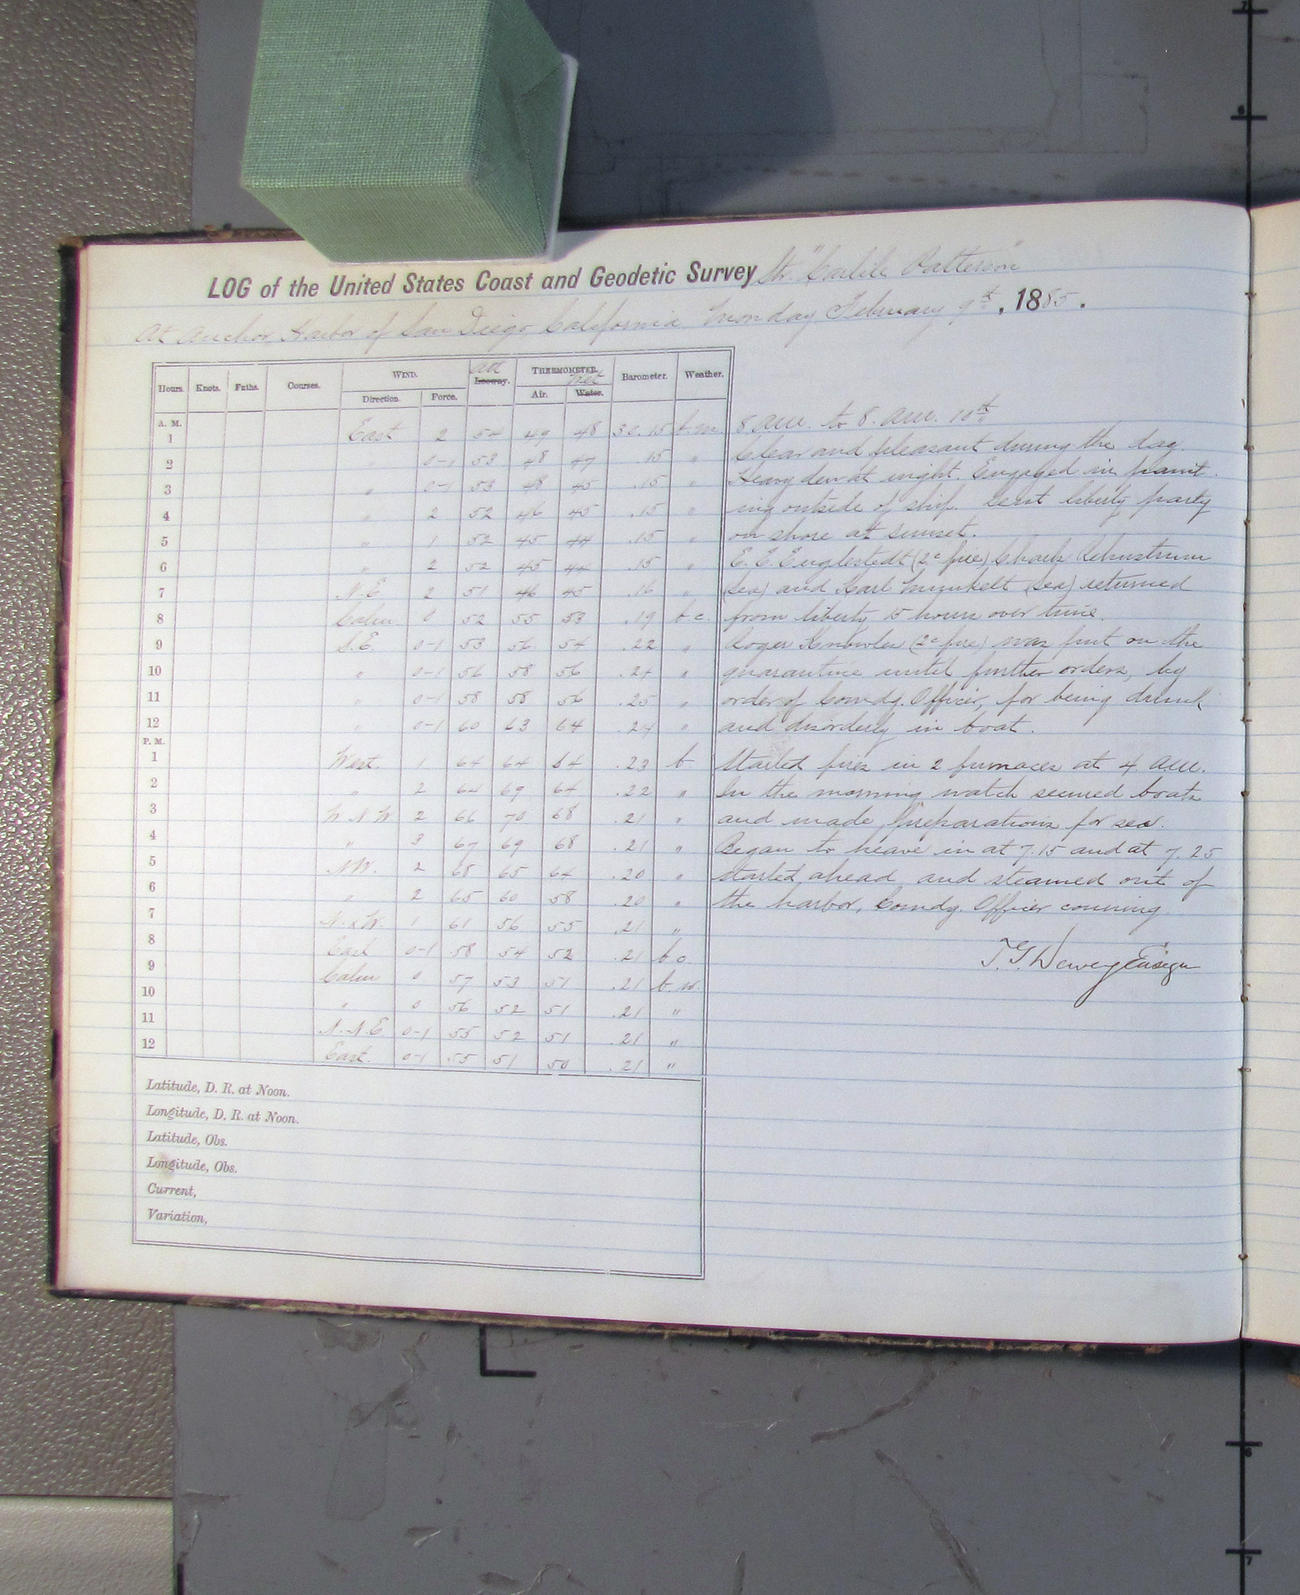 LOG of the United States Coast and Geodetic Survey Str. "Carlile Patterson"
At Anchor, Harbor of San Diego, California Monday February 9th, 1885.
Hours. Knots. Faths. Courses. WIND. Direction. Force. Att Leeway. THERMOMETER. Air. Wet Water. Barometer. Weather.
A. M.
1 East 2 54 49 48 30.15 b.m.
2 " 0-1 53 48 47 .15 "
3 " 0-1 53 48 45 .15 "
4 " 2 52 46 45 .15 "
5 " 1 52 45 44 .15 "
6 " 2 52 45 44 .15 "
7 N.E 2 51 46 45 .16 "
8 Calm 0 52 55 53 .19 b.c.
9 S.E. 0-1 53 56 54 .22 "
10 " 0-1 56 58 56 .24 "
11 " 0-1 58 58 56 .25 "
12 " 0-1 60 63 64 .24 "
P. M.
1 West. 1 64 64 64 .23 b.
2 " 2 64 69 64 .22 "
3 W.N.W. 2 66 70 68 .21 "
4 " 3 67 69 68 .21 "
5 N.W. 2 68 65 64 .20 "
6 " 2 65 60 58 .20 "
7 1 61 56 55 .21 "
8 East 0-1 58 54 52 .21 b.c.
9 Calm 0 57 53 51 .21 b.m.
10 " 0 56 52 51 .21 "
11 N.N.E 0-1 55 52 51 .21 "
12 East. 0-1 55 51 50 .21 "
Latitude, D. R. at Noon.
Longitude, D. R. at Noon.
Latitude, Obs.
Longitude, Obs.
Current,
Variation,
8 A.M. to 8. A.M. 10th
Clear and pleasant during the day.
Heavy dew at night. Engaged in paint-
ing outside of ship. Sent liberty party
on shore at sunset.
E. E. Englestedt (2c fire)
(Sea) and Karl (Sea) returned
from liberty 15 hours over time.
Roger Knowles (2c fire) was put on the
quarantine until further orders, by
order of Comdg. Officer, for being drunk
and disorderly in boat.
Started fires in 2 furnaces at 4 A.M.
In the morning watch secured boats
and made preparations for sea.
Began to heave in at 7.15 and at 7.25
started ahead and steamed out of
the harbor, Comdg. Officer conning.
T. G. Dewey Ensign